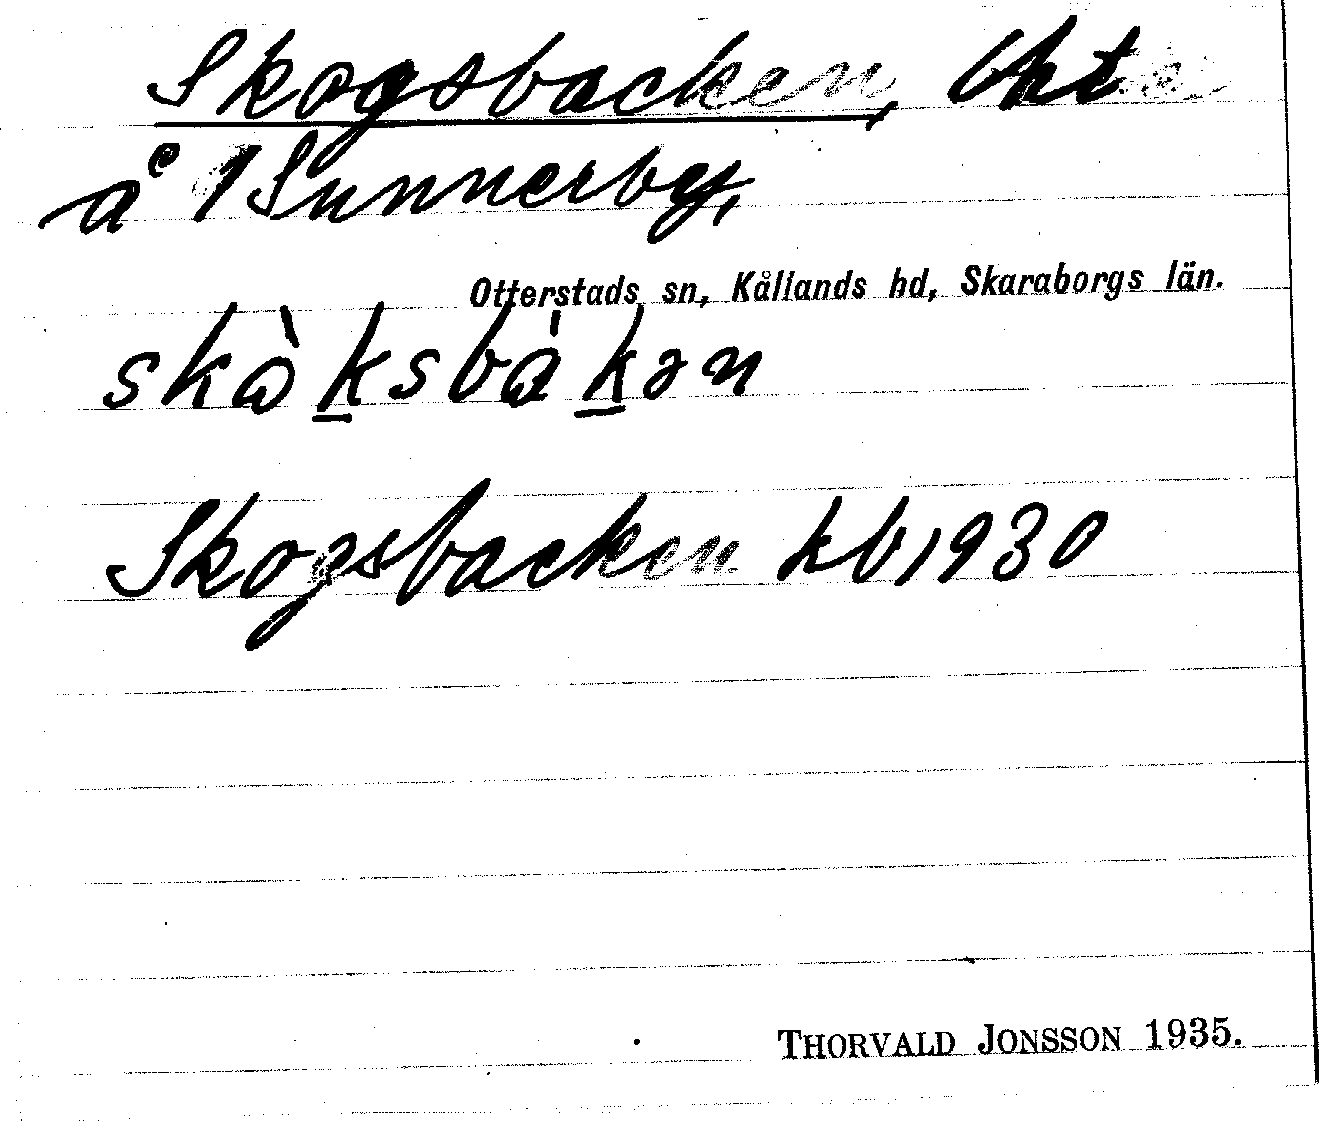 Skogsbacken,
å 1 Sunnerby,
Otterstads sn, Kållands hd, Skaraborgs län.
skὼksbàkən
Skogsbacken kb 1930
THORVALD JONSSON 1935.